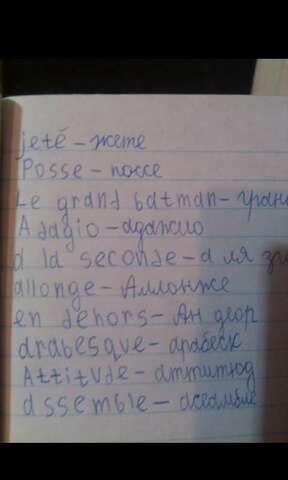 jeté – жете
Posse – поссе
Le grand batman – гран
Adagio – адажио
a la seconde – а ля
allonge – Аллонже
en dehors – Ан деор
arabesque – арабеск
Attitude – аттитюд
assemble – асамбле